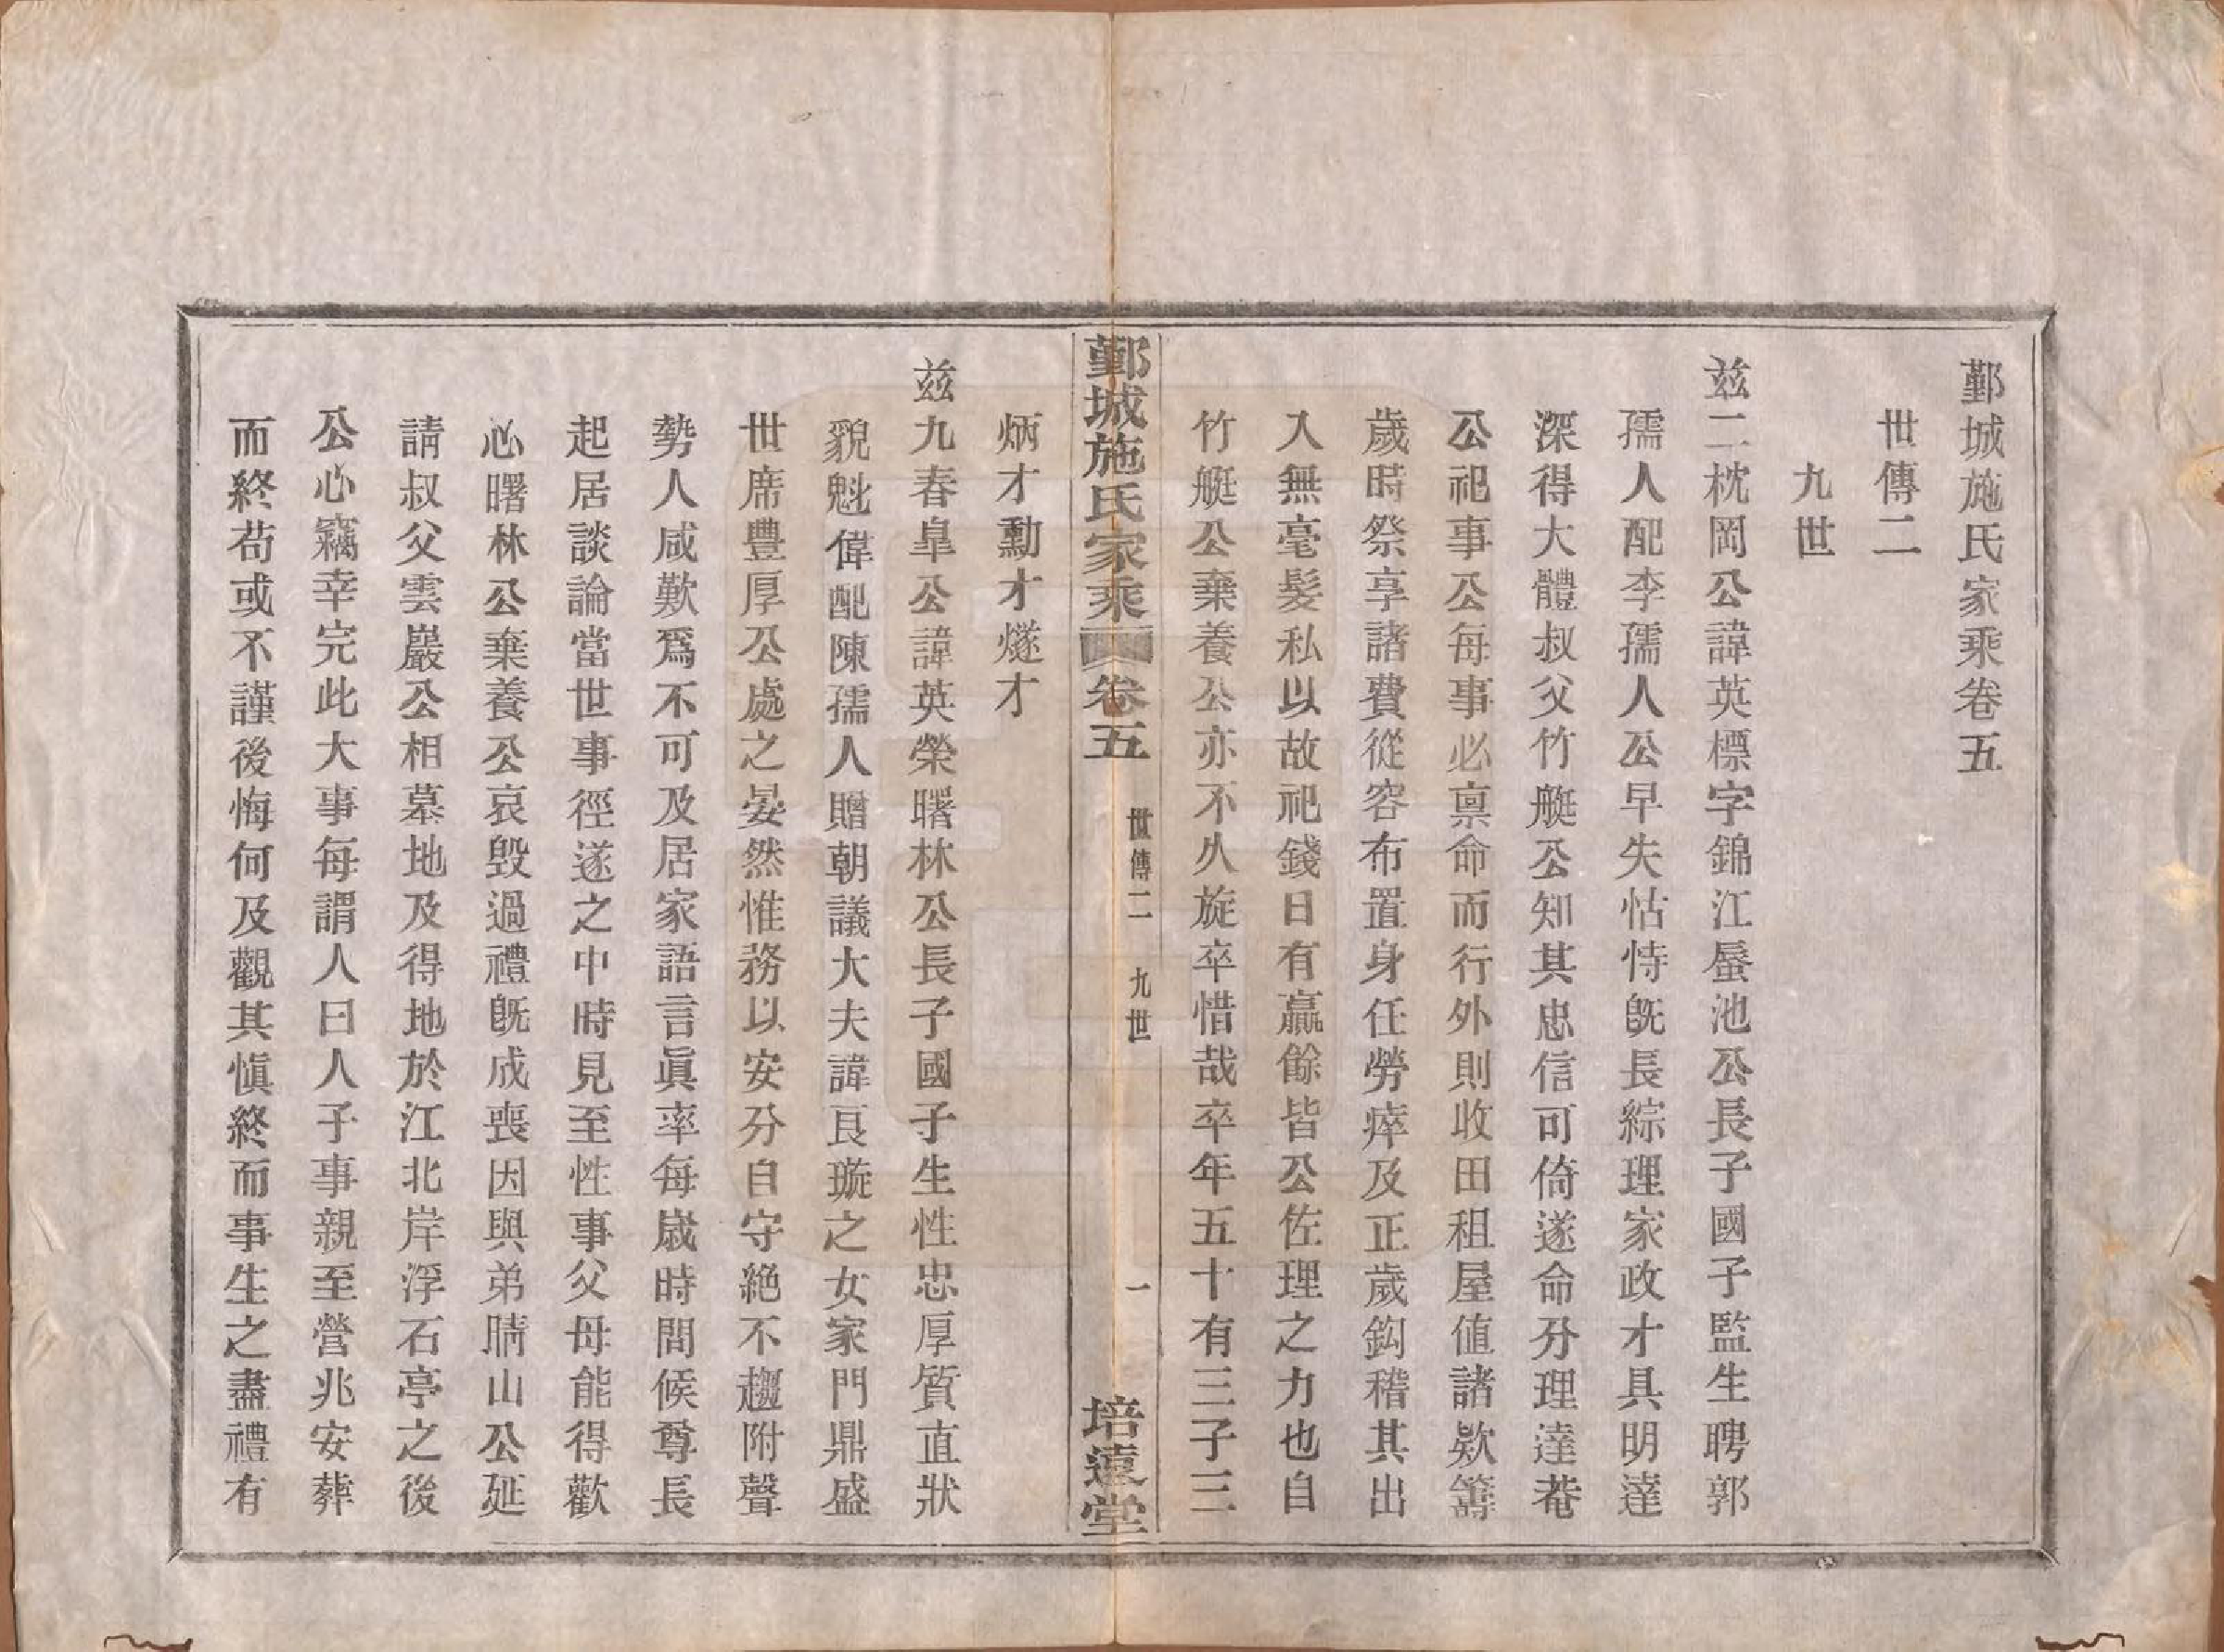 鄞城施氏家乘卷五
世傳二
九世
茲二枕岡公諱英標字錦江蜃池公長子國子監生聘郭
孺人配李孺人公早失怙恃旣長綜理家政才具明達
深得大體叔父竹艇公知其忠信可倚遂命分理達菴
公祀事公每事必禀命而行外則收田租屋値諸欵籌
歲時祭享諸費從容布置身任勞瘁及正歲鈎稽其出
入無毫髮私以故祀錢日有贏餘皆公佐理之力也自
竹艇公棄養公亦不久旋卒惜哉卒年五十有三子三
鄞城施氏家乘 卷五 世傳二 九世 一 培遠堂
炳才勳才燧才
茲九春臯公諱英榮曙林公長子國子生性忠厚質直狀
貌魁偉配陳孺人贈朝議大夫諱良璇之女家門鼎盛
世席豐厚公處之晏然惟務以安分自守絶不趨附聲
勢人咸歎爲不可及居家語言眞率每歲時問候尊長
起居談論當世事徑遂之中時見至性事父母能得歡
心曙林公棄養公哀毀過禮旣成喪因與弟晴山公延
請叔父雲巖公相墓地及得地於江北岸浮石亭之後
公心竊幸完此大事每謂人曰人子事親至營兆安葬
而終苟或不謹後悔何及觀其愼終而事生之盡禮有